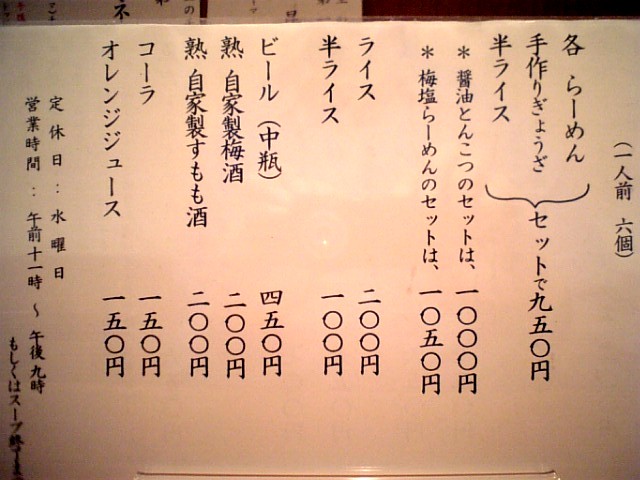 (一人前 六個)
各 らーめん
手作りぎょうざ
半ライス
セットで九五〇円
* 醤油とんこつのセットは、一〇〇〇円
* 梅塩らーめんのセットは、一〇五〇円
ライス 二〇〇円
半ライス 一〇〇円
ビール (中瓶) 四五〇円
熟 自家製梅酒 二〇〇円
熟 自家製すもも酒 二〇〇円
コーラ 一五〇円
オレンジジュース 一五〇円
定休日:水曜日
営業時間:午前十一時 〜 午後九時
もしくはスープ終了ま